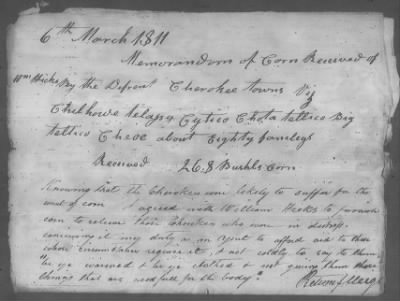 6th March 1811
Memorandum of Corn Received of
Wm Hicks By the Deferent Cherokee towns Viz
Chelhowe telapq Cytico Chota tellico Big
tellico Cheoe about Eighty familys
Received 268 Bushls Corn
Knowing that the Cherokees were likely to suffer for the
want of corn I agreed with William Hicks to furnish
corn to relieve those Cherokees who were in distress
conceiving it my duty as an agent to afford aid to those
whose circumstances require it, & not coldly to say to them
"be ye warmed & be ye clothed & not giving them those
things that are needfull for the body."
Return J. Meigs